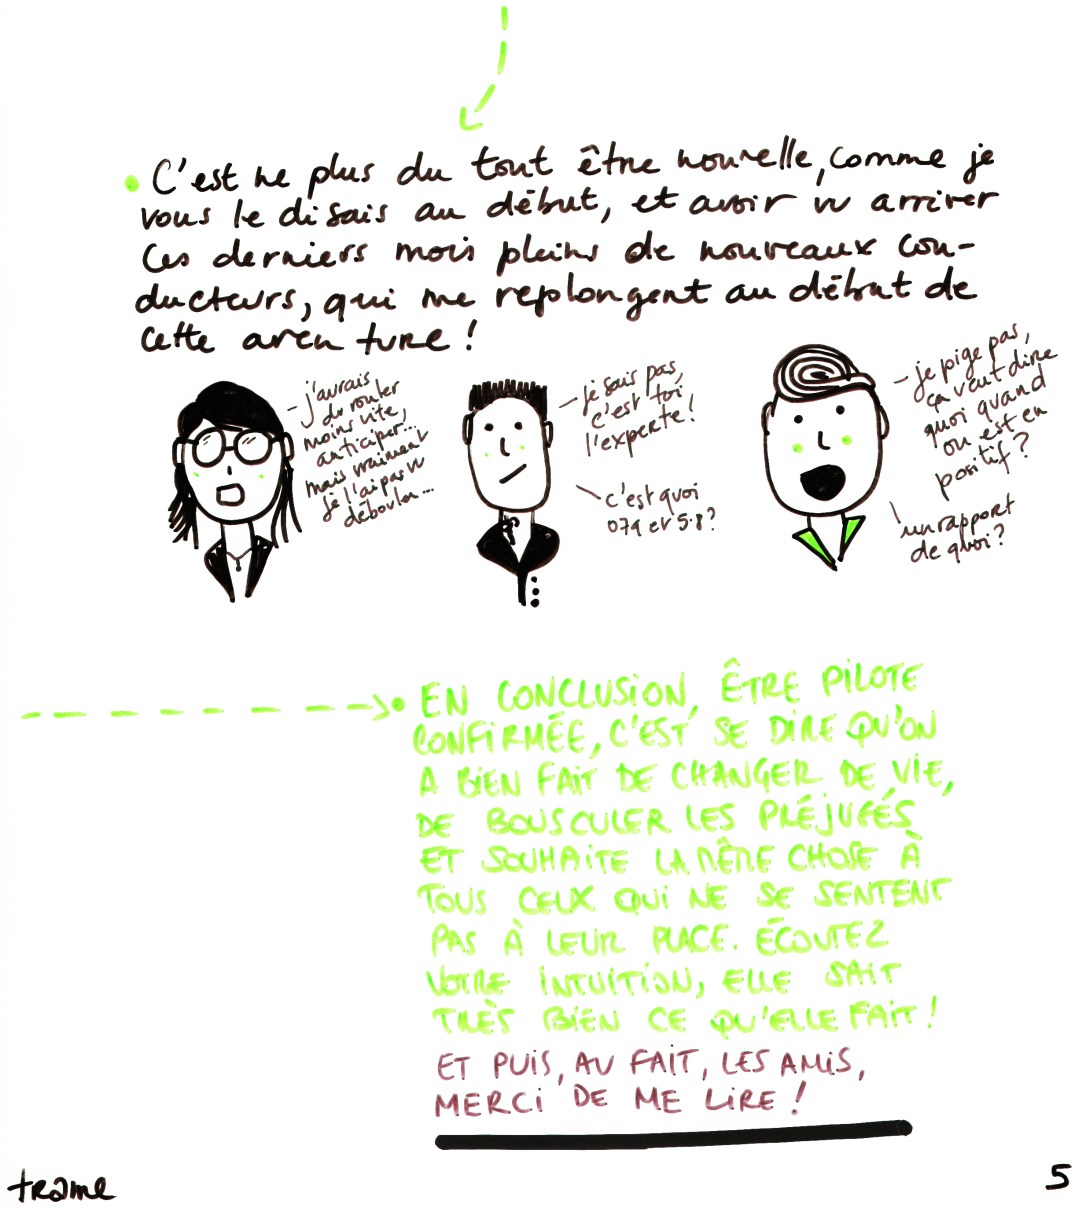 • C'est ne plus du tout être nouvelle, comme je
vous le disais au début, et avoir vu arriver
ces derniers mois pleins de nouveaux con-
ducteurs, qui me replongent au début de
cette aventure !
- j'aurais
du rouler
moins vite,
anticiper...
mais vraiment
je l'ai pas vu
débouler...
- je sais pas,
c'est toi
l'experte !
c'est quoi
079 et 5.8 ?
- je pige pas,
ça veut dire
quoi quand
on est en
positif ?
un rapport
de quoi ?
• EN CONCLUSION, ÊTRE PILOTE
CONFIRMÉE, C'EST SE DIRE QU'ON
A BIEN FAIT DE CHANGER DE VIE,
DE BOUSCULER LES PRÉJUGÉS
ET SOUHAITE LA MÊME CHOSE À
TOUS CEUX QUI NE SE SENTENT
PAS À LEUR PLACE. ÉCOUTEZ
VOTRE INTUITION, ELLE SAIT
TRÈS BIEN CE QU'ELLE FAIT !
ET PUIS, AU FAIT, LES AMIS,
MERCI DE ME LIRE !
trame
5